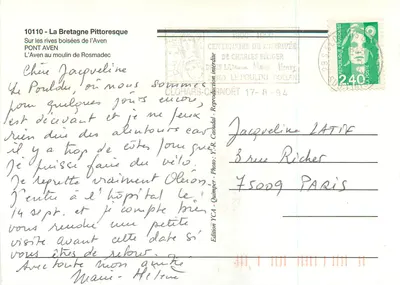 10110 - La Bretagne Pittoresque
Sur les rives boisées de l'Aven
PONT AVEN
L'Aven au moulin de Rosmadec
Chère Jacqueline
Le Pouldu, où nous sommes
pour quelques jours encore,
est décevant et je ne peux
rien dire des alentours car
il y a trop de côtes pour que
je puisse faire du vélo.
Je regrette vraiment Oléron.
J'entre à l'hôpital le
14 sept. et je compte bien
vous rendre une petite
visite avant cette date si
vous êtes de retour.
Avec toute mon amitié
Marie-Hélène
Edition YCA - Quimper - Photo : Y.R. Caoudal - Reproduction interdite
17-8-94
2,40
Jacqueline LATIF
3 rue Richer
75009 PARIS